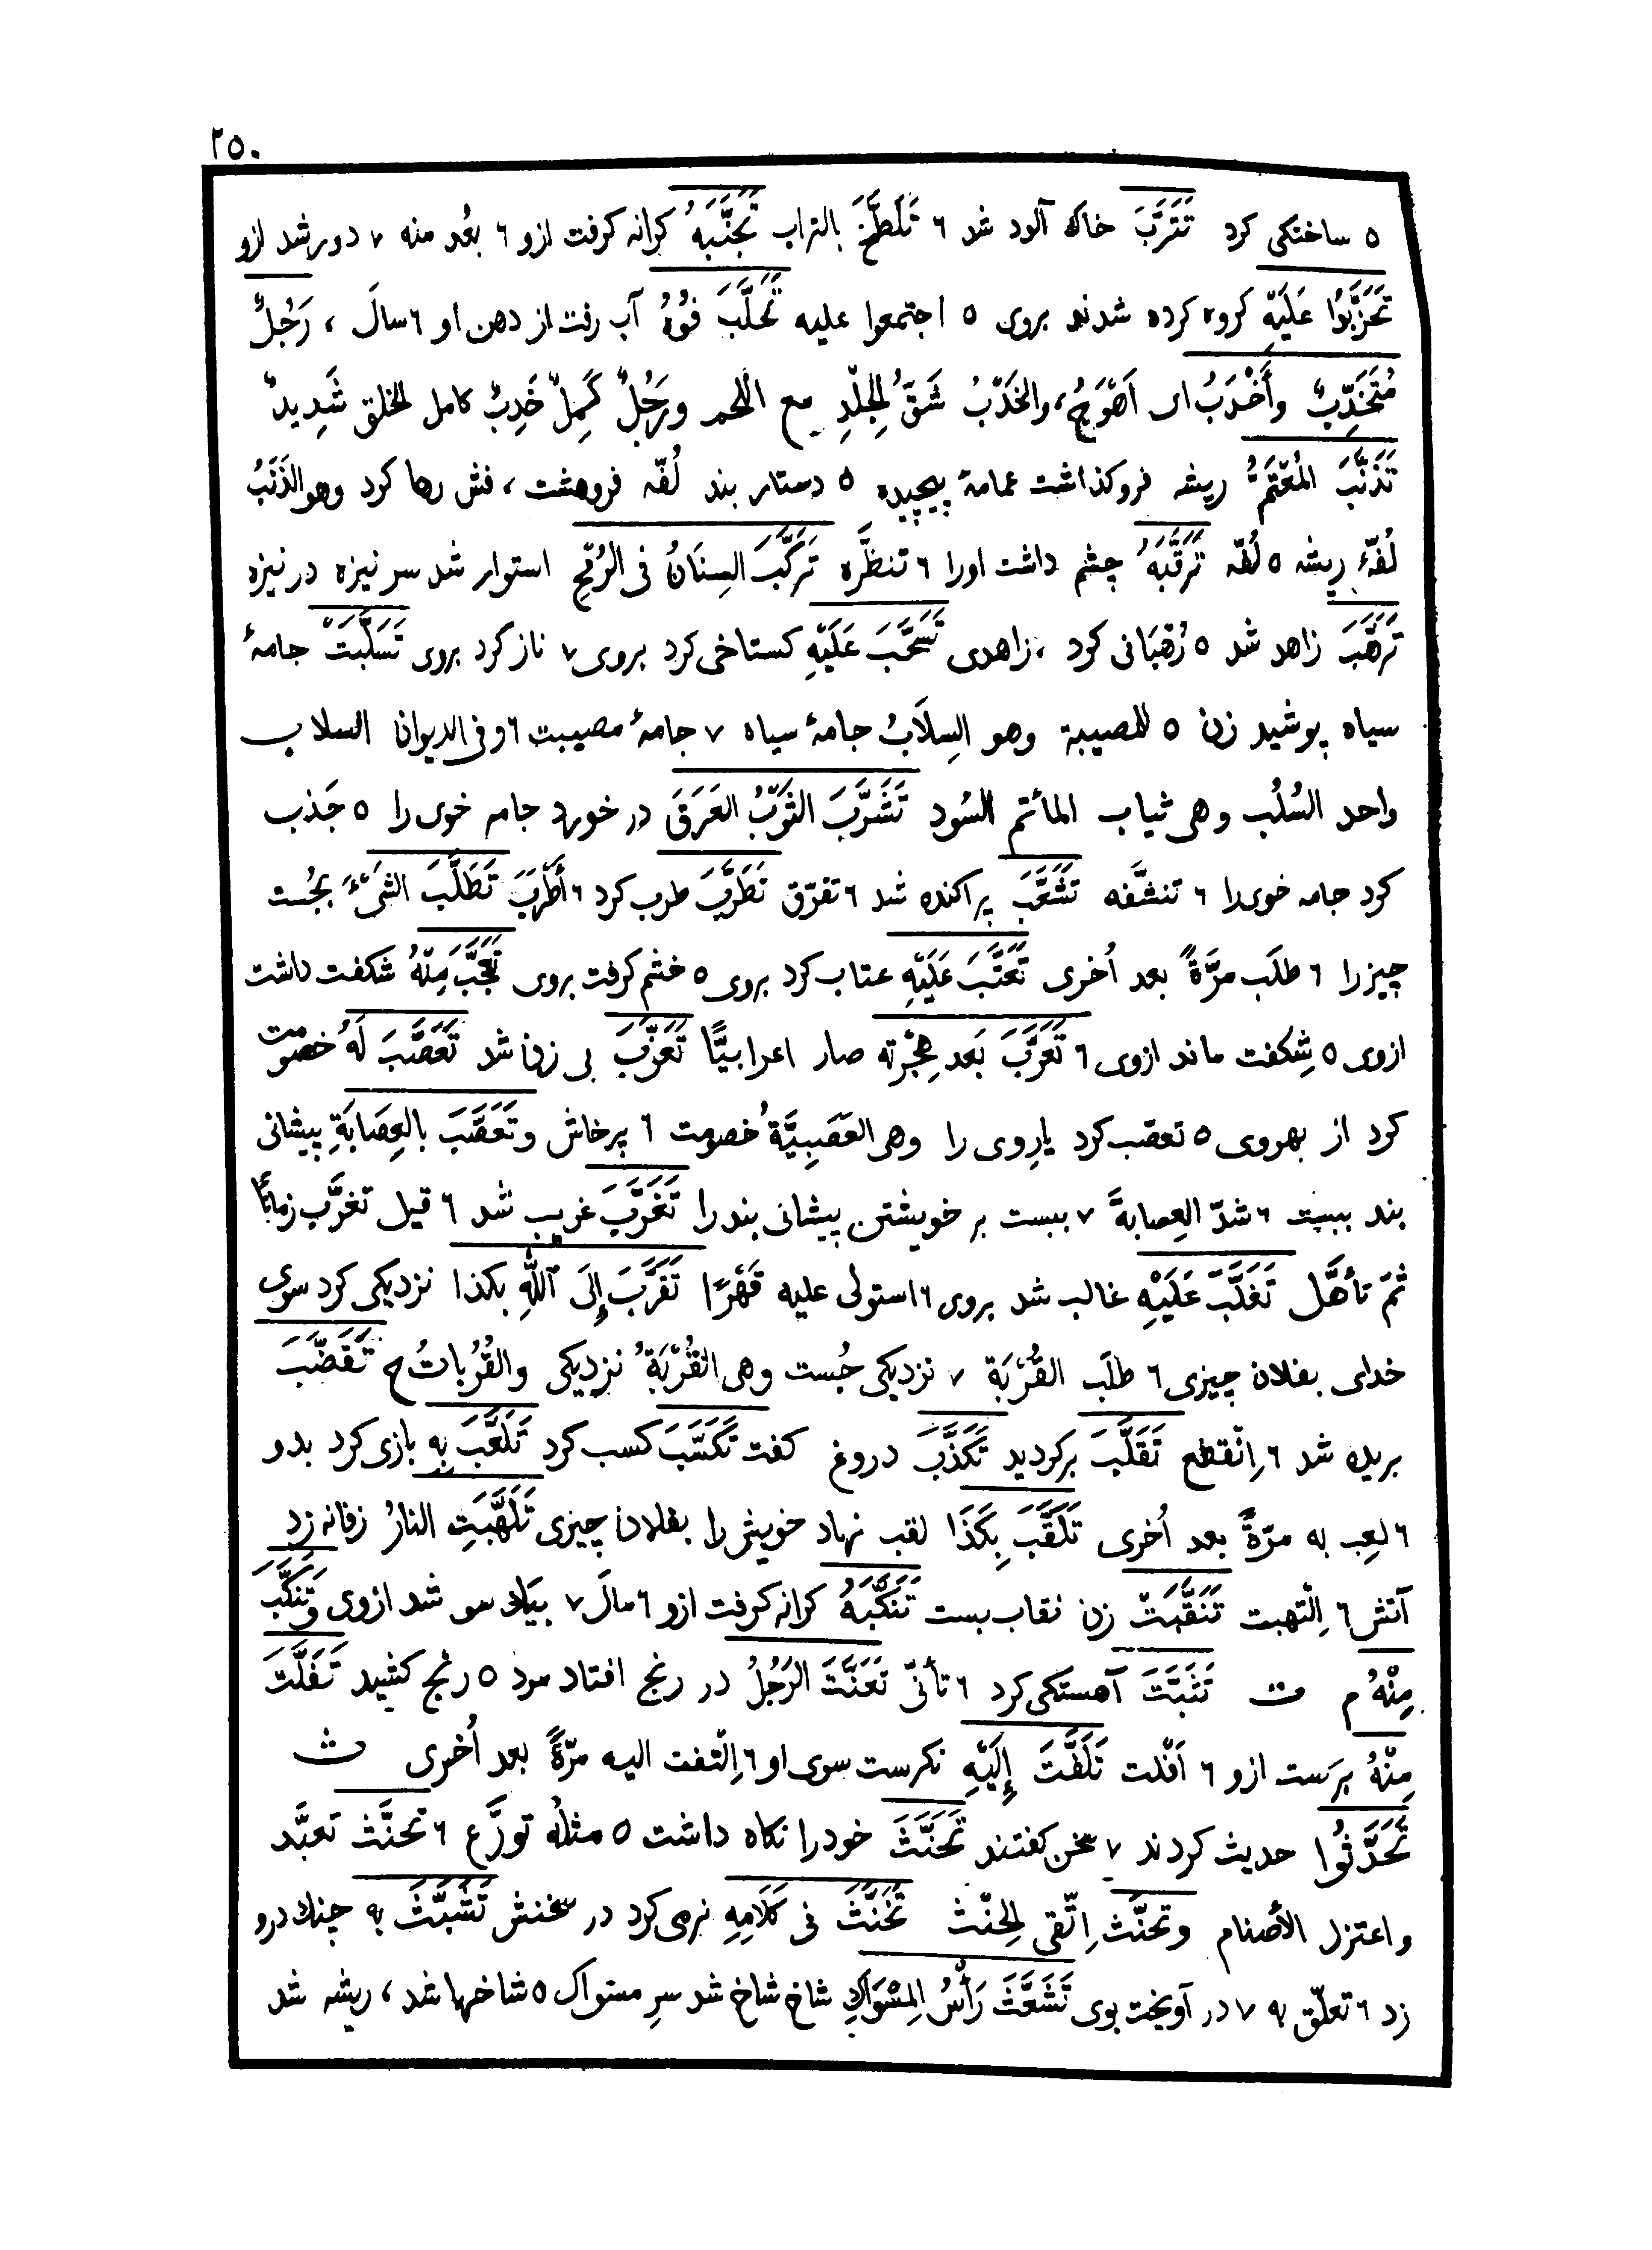 ٢٥٠
٥ ساختکی کرد تَتَرَّبَ خاک آلود شد ٦ تَلَطَّخَ بالتراب تَجَنَّبَهُ کرانه کرفت ازو ٦ بَعُد منه ٧ دور شد ازو
تَحَزَّبُوا عَلَيْهِ کروه کرده شدند بروی ٥ اجتمعوا علیه تَحَلَّبَ فُوْهُ آب رفت از دهن او ٦ سالَ ، رَجُلٌ
مُتَخَدِّبٌ وأَخْدَبُ ای اَهْوَجُ ، والخَدْبُ شَقُّ الجِلْدِ مع اللحم ورَجُلٌ خَدِبٌ کامل الخلق شَدِیدٌ
تَذَنَّبَ المُعْتَمُّ ریشه فروکذاشت عمامهٔ پیچیده ٥ دستار بند لُفّه فروهشت ، فش رها کرد وهو الذَنَبُ
لُفّهٔ ریشه ٥ لُفّه تَرَقَّبَهُ چشم داشت اورا ٦ تنظَّره تَرَكَّبَ السِنَانُ فی الرُمْحِ استوار شد سر نیزه در نیزه
تَرَهَّبَ زاهد شد ٥ رُهْبَانی کرد ، زاهدی تَسَحَّبَ عَلَيْهِ کستاخی کرد بروی ٧ ناز کرد بروی تَسَلَّبَتْ جامهٔ
سیاه پوشید زن ٥ للمصیبة وهو السِلَابُ جامهٔ سیاه ٧ جامهٔ مصیبت ٦ وفی الدیوان السلاب
واحد السُلُب وهی ثیاب المأتم السُود تَشَرَّبَ الثَوْبُ العَرَقَ در خورد جامه خوی را ٥ جَذب
کرد جامه خوی را ٦ تنشَّفه تَشَعَّبَ پراکنده شد ٦ تفرّق تَطَرَّبَ طرب کرد ٦ أَطْرَبَ تَطَلَّبَ الشَیْءَ بجُست
چیز را ٦ طلَب مرَّةً بعد اُخری تَعَتَّبَ عَلَيْهِ عتاب کرد بروی ٥ خشم کرفت بروی تَعَجَّبَ مِنْهُ شکفت داشت
ازوی ٥ شِکفت ماند ازوی ٦ تَعَرَّبَ بَعد هِجْرَته صار اعرابیًّا تَعَزَّبَ بی زن شد تَعَصَّبَ لَهُ خصومت
کرد از بهروی ٥ تعصّب کرد یارِوی را وهی العَصَبِیَّةُ خصومت ٦ پرخاش وتَعَصَّبَ بالعِصَابَةِ پیشانی
بند ببست ٦ شدّ العِصابةَ ٧ ببست بر خویشتن پیشانی بند را تَغَرَّبَ غریب شد ٦ قیل تغرَّب زمانًا
ثمّ تأهَّل تَغَلَّبَ عَلَيْهِ غالب شد بروی ٦ استولی علیه قَهْرًا تَقَرَّبَ إِلَى اللّٰهِ بکذا نزدیکی کرد سوی
خدای بفلان چیزی ٦ طلَب القُرْبَة ٧ نزدیکی جُست وهی القُرْبَةُ نزدیکی والقُرُباتُ ج تَقَضَّبَ
بریده شد ٦ اِنْقطع تَقَلَّبَ برکردید تَكَذَّبَ دروغ کفت تَكَسَّبَ کسب کرد تَلَعَّبَ بِهِ بازی کرد بدو
٦ لعِب به مرّةً بعد اُخری تَلَقَّبَ بِكَذَا لقب نهاد خویش را بفلان چیزی تَلَهَّبَتِ النارُ زفانه زد
آتش ٦ اِلْتهبت تَنَقَّبَتْ زن نقاب بست تَنَكَّبَهُ کرانه کرفت ازو ٦ مالَ ٧ بیک سو شد ازوی وتَنَكَّبَ
مِنْهُ م ت تَثَبَّتَ آهستکی کرد ٦ تأنّی تَعَنَّتَ الرَجُلُ در رنج افتاد مرد ٥ رنج کشید تَفَلَّتَ
مِنْهُ برَست ازو ٦ اَفْلت تَلَفَّتَ إِلَيْهِ نکرست سوی او ٦ اِلْتفت الیه مرّةً بعد اُخری ث
تَحَدَّثُوا حدیث کردند ٧ سخن کفتند تَحَنَّثَ خودرا نکاه داشت ٥ مثلهُ تورَّع ٦ تحنَّث تعبَّد
واعتزل الأصنام وتحنَّث اِتّقی الحِنْث تَخَنَّثَ فی كَلَامِهِ نرمی کرد در سخنش تَشَبَّثَ به چنک درو
زد ٦ تعلّق به ٧ در آویخت بوی تَشَعَّثَ رَأْسُ المِسْوَاكِ شاخ شاخ شد سرِ مسواک ٥ شاخها شد ، ریشه شد